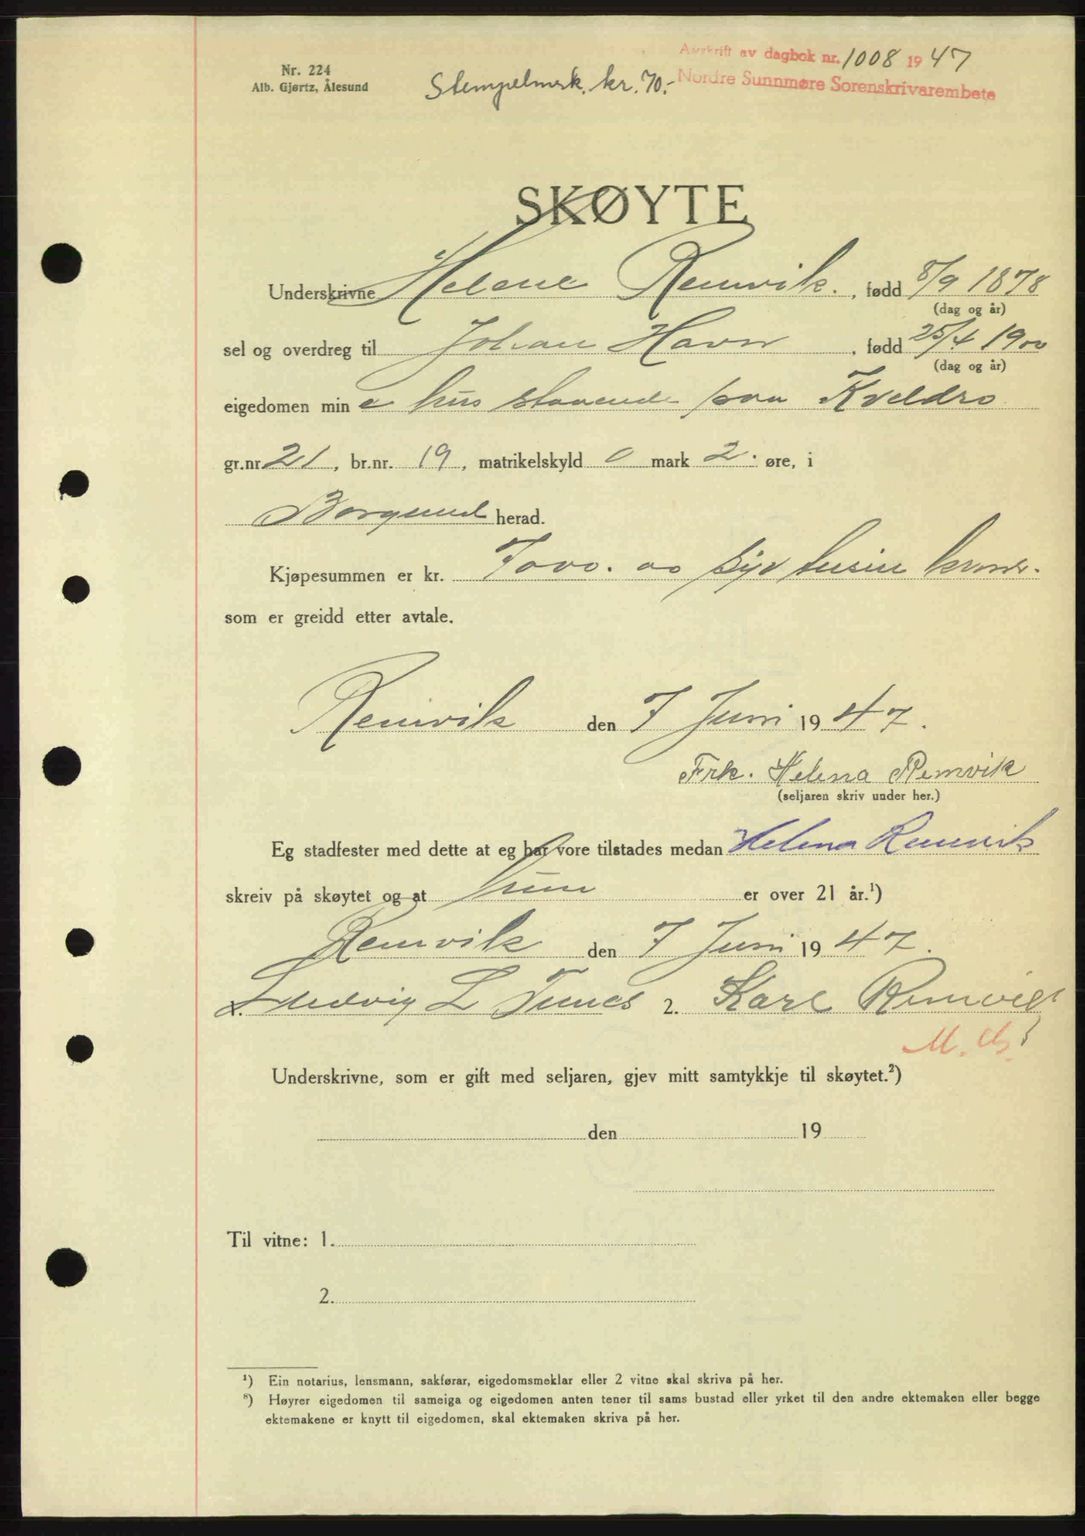 Nr. 224
Alb. Gjørtz, Ålesund
Stempelmerk. kr. 70.-
Avskrift av dagbok nr. 1008 1947
Nordre Sunnmøre Sorenskrivarembete
SKØYTE
Underskrivne Helene Remvik. , fødd 8/9 1878
(dag og år)
sel og overdreg til Johan Havn , fødd 25/4 1900
(dag og år)
eigedomen min e hus staaende paa Kveldro
gr.nr. 21 , br.nr. 19 , matrikelskyld 0 mark 2. øre, i
Borgund herad.
Kjøpesummen er kr. 7000. oo syv tusin kroner.
som er greidd etter avtale.
Remvik den 7 Juni 1947.
Frk. Helena Remvik
(seljaren skriv under her.)
Eg stadfester med dette at eg har vore tilstades medan Helena Remvik
skreiv på skøytet og at hun er over 21 år.¹)
Remvik den 7 Juni 1947.
Ludvig L Tunes 2. Karl Remvik
Underskrivne, som er gift med seljaren, gjev mitt samtykkje til skøytet.²)
den 19
Til vitne: 1.
2.
¹) Ein notarius, lensmann, sakførar, eigedomsmeklar eller 2 vitne skal skriva på her.
²) Høyrer eigedomen til sameiga og eigedomen anten tener til sams bustad eller yrket til den andre ektemaken eller begge
ektemakene er knytt til eigedomen, skal ektemaken skriva på her.